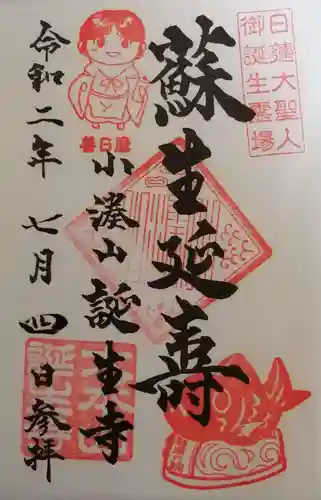 日蓮大聖人
御誕生霊場
蘇生延壽
小湊山 誕生寺
善日麿
令和二年 七月 四日 参拝